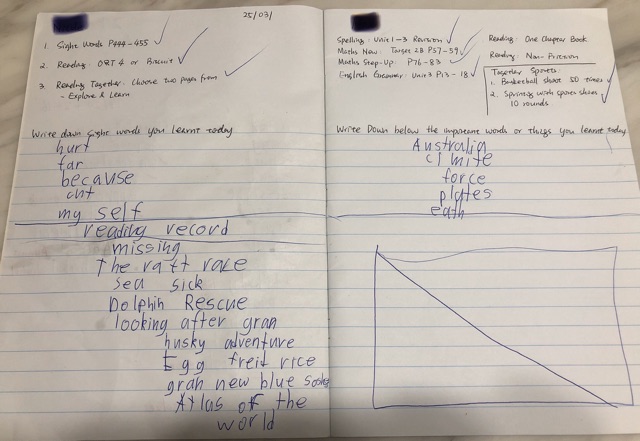 25/03/
1. Sight Words P444-455
2. Reading: ORT 4 or Biscuit
3. Reading Together: Choose two pages from
- Explore & Learn
Write down sight words you learnt today
hurt
far
because
cnt
my self
reading record
missing
The raft race
sea sick
Dolphin Rescue
looking after gran
husky adventure
Egg freid rice
gran new blue
Atlas of the
world
Spelling: Unit 1-3 Revision
Maths Now: Target 2B P57-59
Maths Step-Up: P76-83
English Grammar: Unit 3 P13-18
Reading: One Chapter Book
Reading: Non-Fiction
Together Sports:
1. Basketball shoot 50 times
2. Springs with sports shoes
10 rounds
Write Down below the important words or things you learnt today
Australia
climite
force
plates
eath